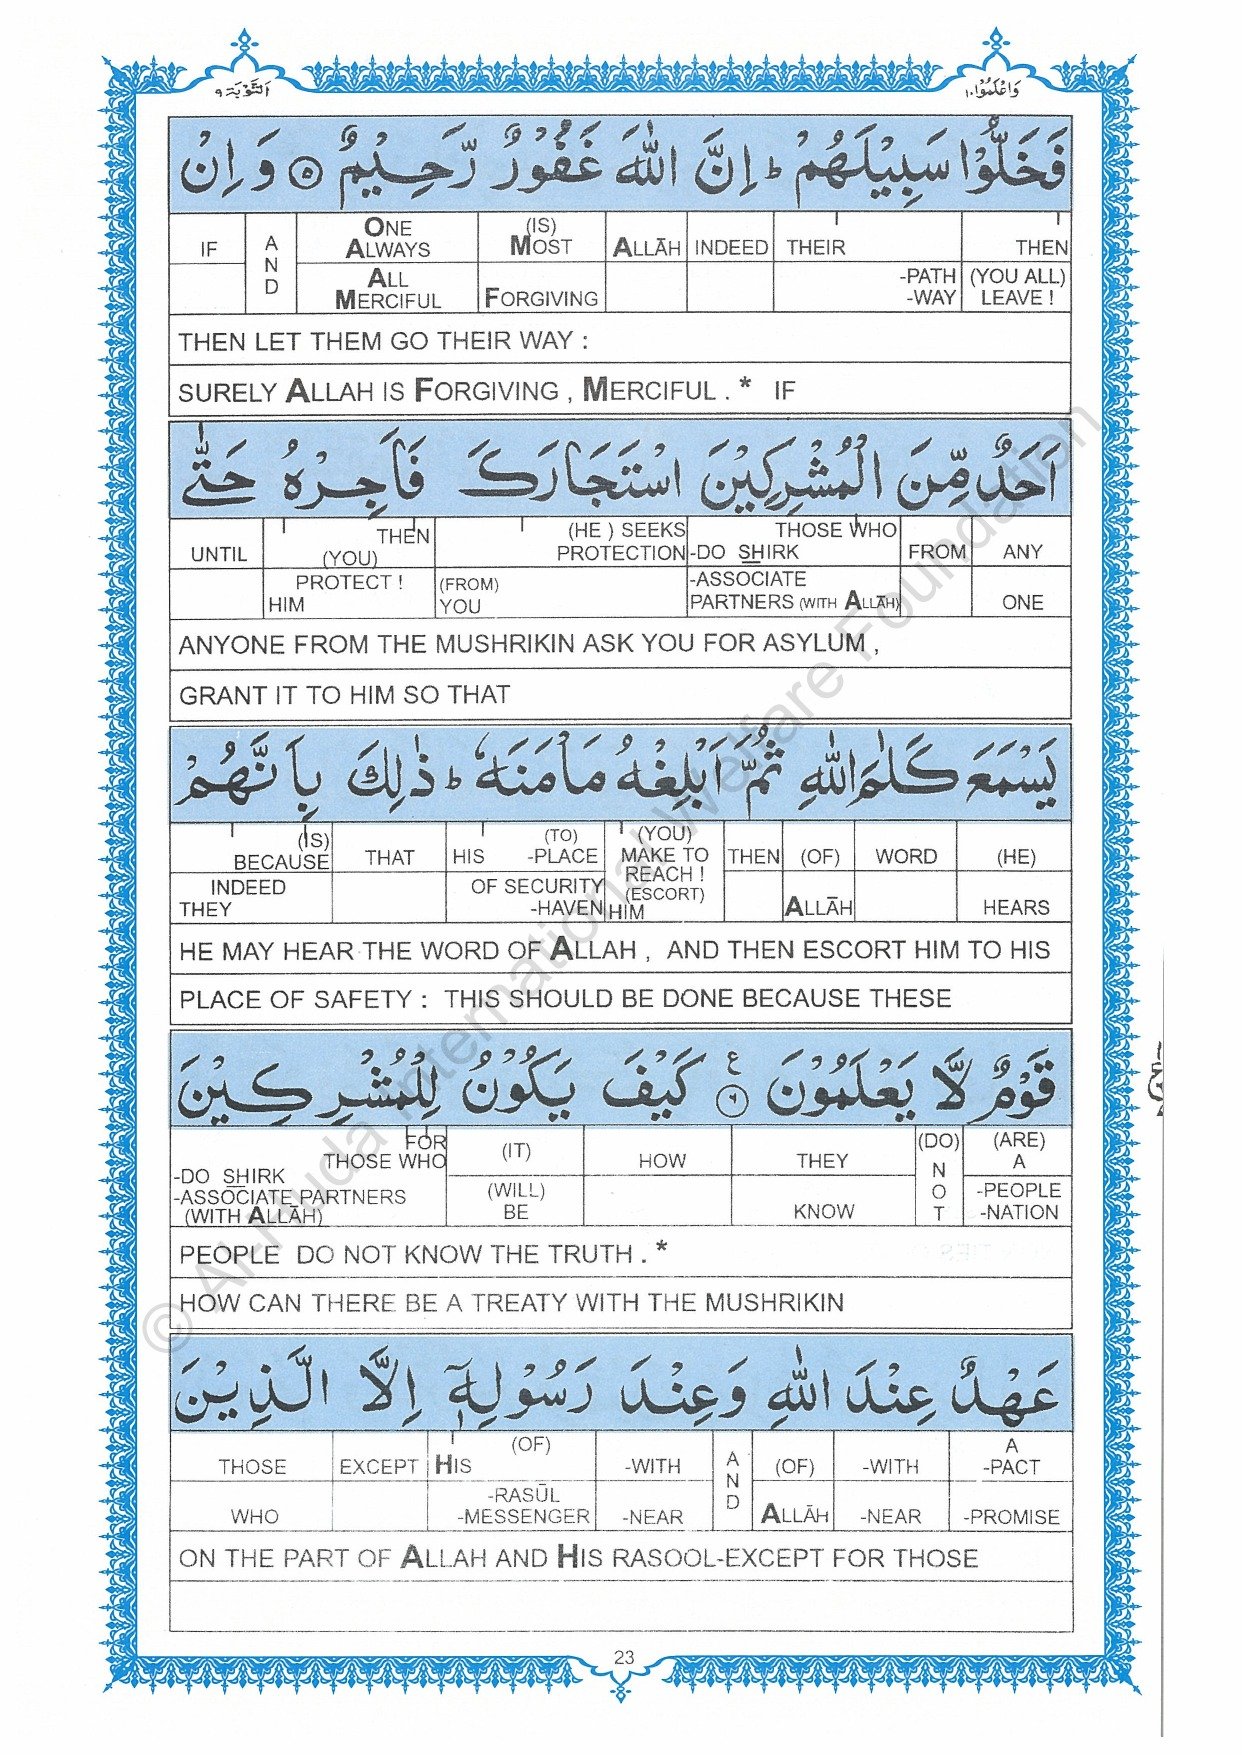 التَّوْبَة ٩
وَاعْلَمُوْٓا ١٠
فَخَلُّوْا سَبِيْلَهُمْ ؕ اِنَّ اللّٰهَ غَفُوْرٌ رَّحِيْمٌ ۝٥ وَ اِنْ
IF AND ONE ALWAYS (IS) MOST ALLĀH INDEED THEIR THEN
ALL MERCIFUL FORGIVING -PATH (YOU ALL)
-WAY LEAVE !
THEN LET THEM GO THEIR WAY :
SURELY ALLAH IS FORGIVING , MERCIFUL . * IF
اَحَدٌ مِّنَ الْمُشْرِكِيْنَ اسْتَجَارَكَ فَاَجِرْهُ حَتّٰى
UNTIL THEN (YOU) (HE ) SEEKS PROTECTION THOSE WHO -DO SHIRK FROM ANY
PROTECT ! HIM (FROM) YOU -ASSOCIATE PARTNERS (WITH ALLĀH) ONE
ANYONE FROM THE MUSHRIKIN ASK YOU FOR ASYLUM ,
GRANT IT TO HIM SO THAT
يَسْمَعَ كَلٰمَ اللّٰهِ ثُمَّ اَبْلِغْهُ مَاْمَنَهٗ ؕ ذٰلِكَ بِاَنَّهُمْ
(IS) BECAUSE THAT HIS (TO) -PLACE (YOU) MAKE TO REACH ! THEN (OF) WORD (HE)
INDEED THEY OF SECURITY -HAVEN (ESCORT) HIM ALLĀH HEARS
HE MAY HEAR THE WORD OF ALLAH , AND THEN ESCORT HIM TO HIS
PLACE OF SAFETY : THIS SHOULD BE DONE BECAUSE THESE
قَوْمٌ لَّا يَعْلَمُوْنَ ۝٦ ع كَيْفَ يَكُوْنُ لِلْمُشْرِكِيْنَ
FOR THOSE WHO (IT) HOW THEY (DO) NOT (ARE) A
-DO SHIRK
-ASSOCIATE PARTNERS (WILL) -PEOPLE
(WITH ALLĀH) BE KNOW -NATION
PEOPLE DO NOT KNOW THE TRUTH . *
HOW CAN THERE BE A TREATY WITH THE MUSHRIKIN
عَهْدٌ عِنْدَ اللّٰهِ وَعِنْدَ رَسُوْلِهٖٓ اِلَّا الَّذِيْنَ
THOSE EXCEPT HIS (OF) -WITH AND (OF) -WITH A -PACT
WHO -RASŪL -MESSENGER -NEAR ALLĀH -NEAR -PROMISE
ON THE PART OF ALLAH AND HIS RASOOL-EXCEPT FOR THOSE
23
© Al-Huda International Welfare Foundation